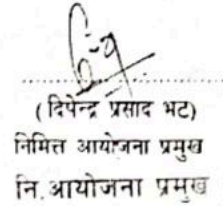 (दिपेन्द्र प्रसाद भट)
निमित्त आयोजना प्रमुख
नि. आयोजना प्रमुख